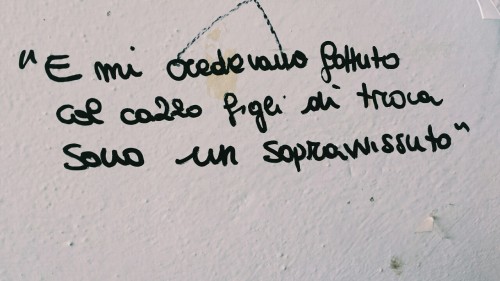 "E mi credevano fottuto
col cazzo figli di troia
sono un sopravvissuto"